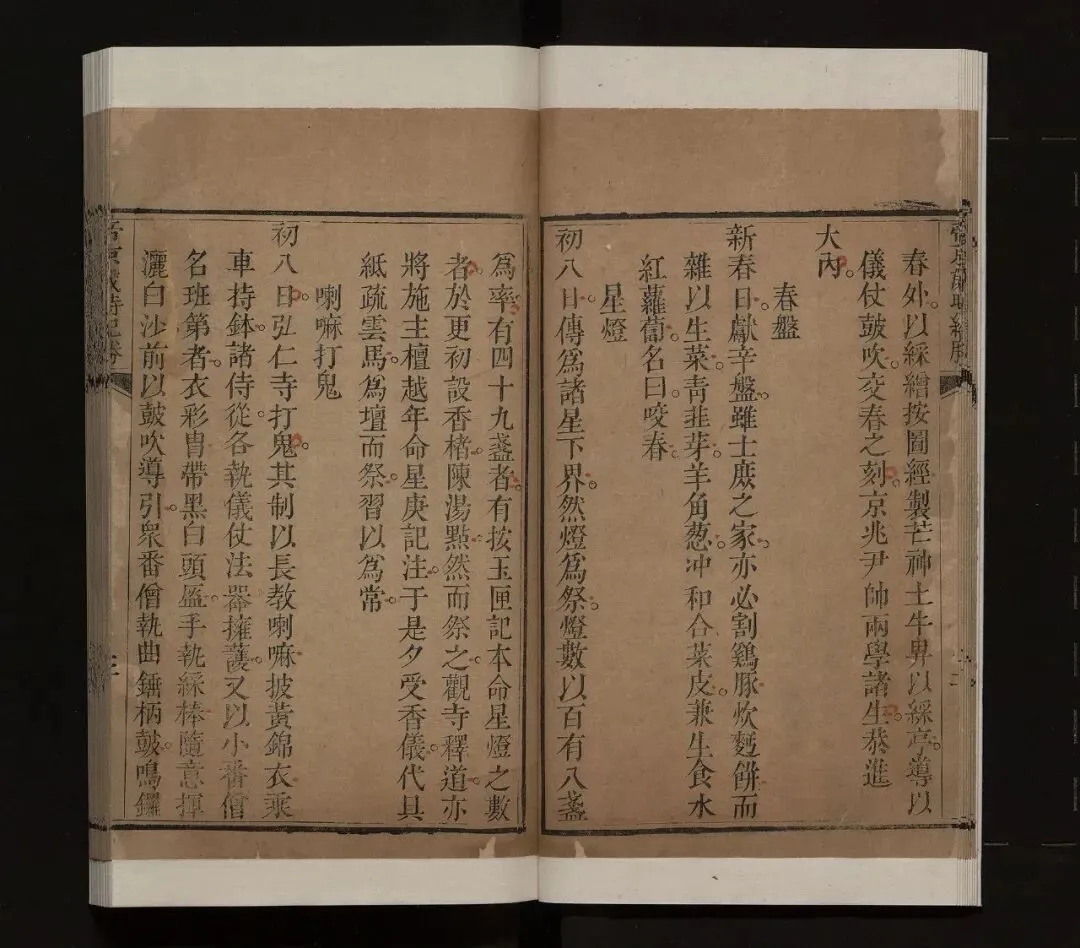 春外以綵繒按圖經製芒神土牛舁以綵亭導以
儀仗鼓吹交春之刻京兆尹帥兩學諸生恭進
大內
春盤
新春日獻辛盤雖士庶之家亦必割鷄豚炊麪餅而
雜以生菜靑韭芽羊角葱冲和合菜皮兼生食水
紅蘿蔔名曰咬春
星燈
初八日傳爲諸星下界然燈爲祭燈數以百有八盞
爲率有四十九盞者有按玉匣記本命星燈之數
者於更初設香楮陳湯點然而祭之觀寺釋道亦
將施主檀越年命星庚記注于是夕受香儀代具
紙疏雲馬爲壇而祭習以爲常
喇嘛打鬼
初八日弘仁寺打鬼其制以長教喇嘛披黃錦衣乘
車持鉢諸侍從各執儀仗法器擁護又以小番僧
名班第者衣彩冑帶黑白頭盔手執綵棒隨意揮
灑白沙前以鼓吹導引衆番僧執曲錘柄鼓鳴鑼
帝京歲時紀
三